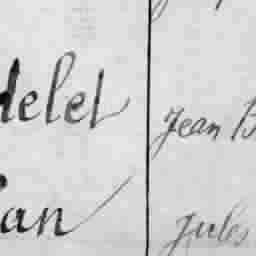 delet
Jean B
an
Jules